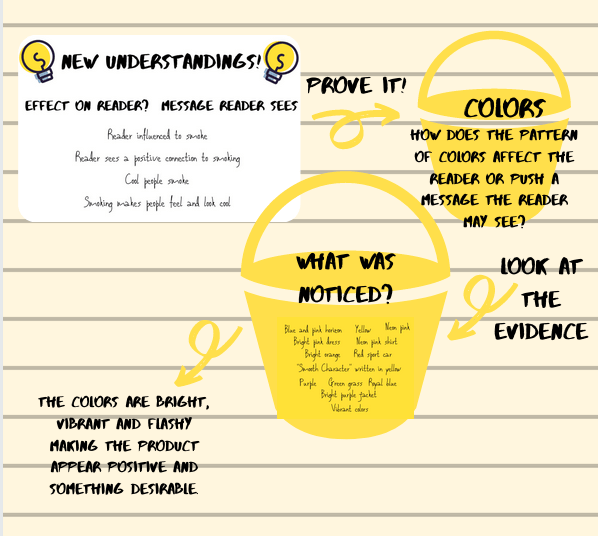 NEW UNDERSTANDINGS!
EFFECT ON READER? MESSAGE READER SEES
Reader influenced to smoke
Reader sees a positive connection to smoking
Cool people smoke
Smoking makes people feel and look cool
PROVE IT!
COLORS
HOW DOES THE PATTERN
OF COLORS AFFECT THE
READER OR PUSH A
MESSAGE THE READER
MAY SEE?
LOOK AT
THE
EVIDENCE
WHAT WAS
NOTICED?
Blue and pink horizen Yellow Neon pink
Bright pink dress Neon pink shirt
Bright orange Red sport car
"Smooth Character" written in yellow
Purple Green grass Royal blue
Bright purple jacket
Vibrant colors
THE COLORS ARE BRIGHT,
VIBRANT AND FLASHY
MAKING THE PRODUCT
APPEAR POSITIVE AND
SOMETHING DESIRABLE.